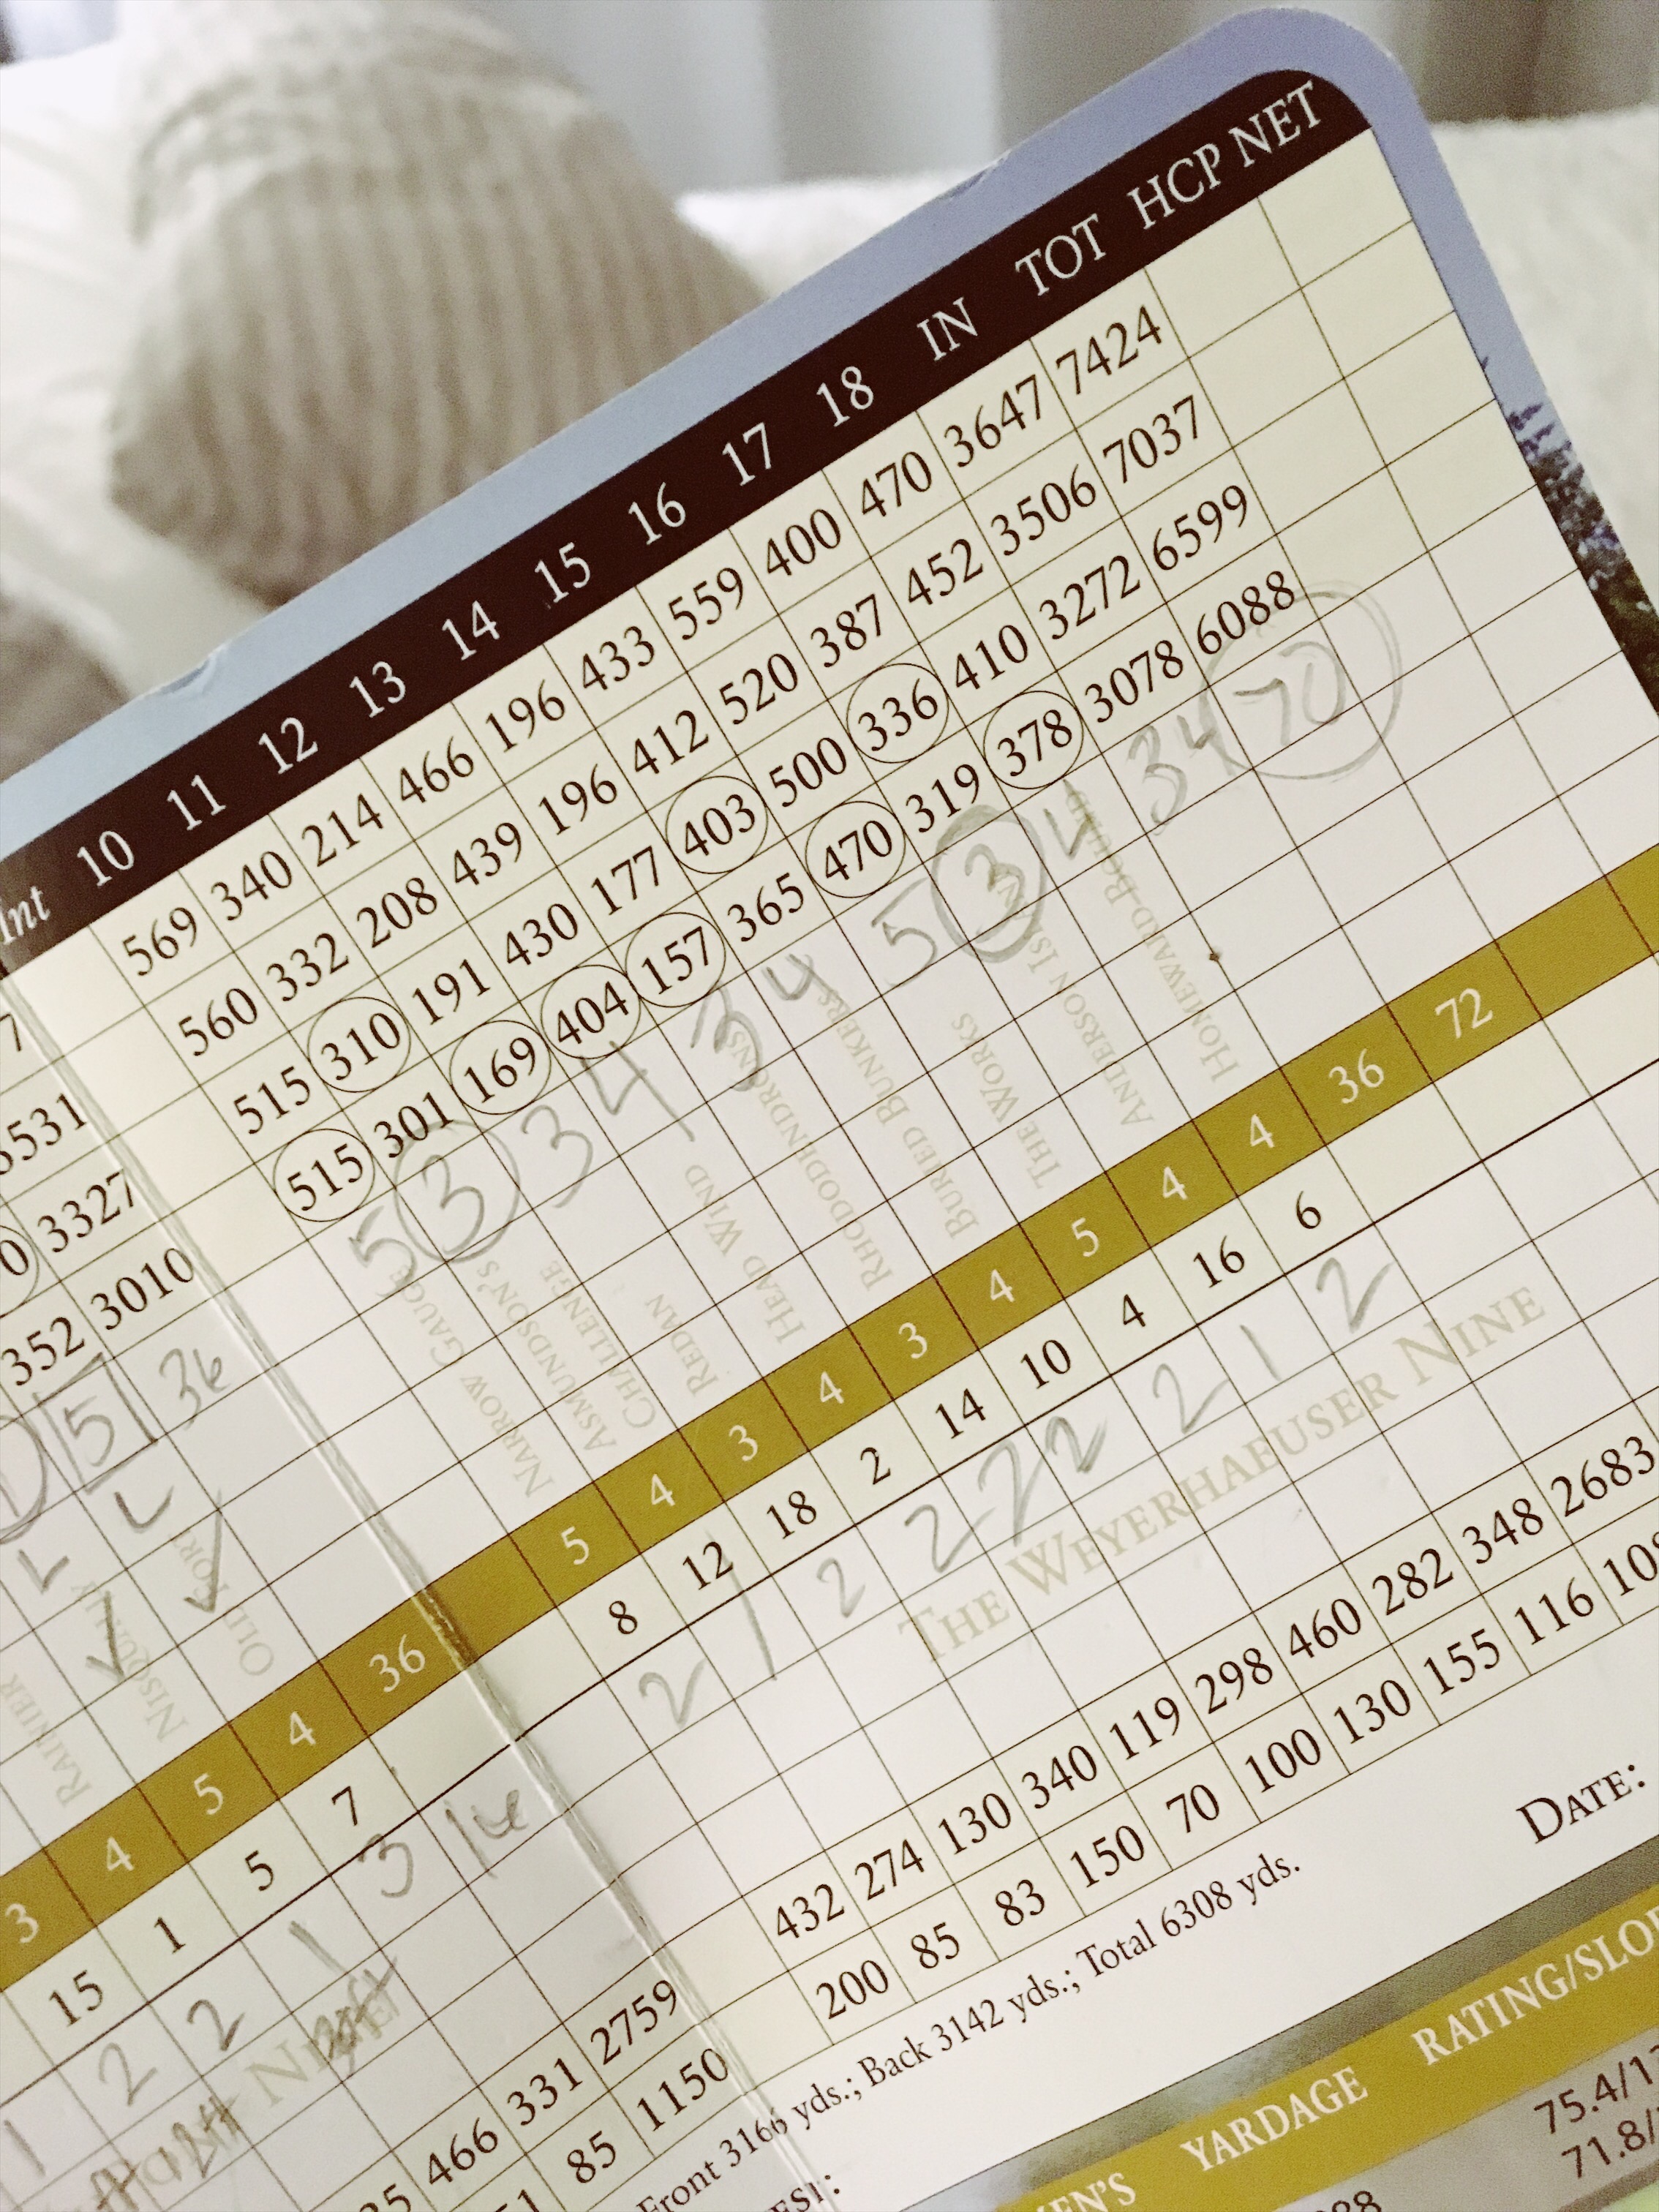 Int 10 11 12 13 14 15 16 17 18 IN TOT HCP NET
7 569 340 214 466 196 433 559 400 470 3647 7424
3531 560 332 208 439 196 412 520 387 452 3506 7037
0 3327 515 310 191 430 177 403 500 336 410 3272 6599
352 3010 515 301 169 404 157 365 470 319 378 3078 6088
5 36 5 3 3 4 3 4 5 3 4 34 70
RAINIER
NISQUALLY
OLD FORT
NARROW GAUGE
ASMUNDSON'S
CHALLENGE
REDAN
HEAD WIND
RHODODENDRONS
BURIED BUNKERS
THE WORKS
ANDERSON ISLAND
HOMEWARD BOUND
3 4 5 4 36 5 4 3 4 3 4 5 4 4 36 72
15 1 5 7 8 12 18 2 14 10 4 16 6
1 2 2 1 3 14 2 1 2 2 2 2 2 1 2
NINE
THE WEYERHAEUSER NINE
466 331 2759 432 274 130 340 119 298 460 282 348 2683
85 1150 200 85 83 150 70 100 130 155 116
Front 3166 yds.; Back 3142 yds.; Total 6308 yds.
DATE:
YARDAGE